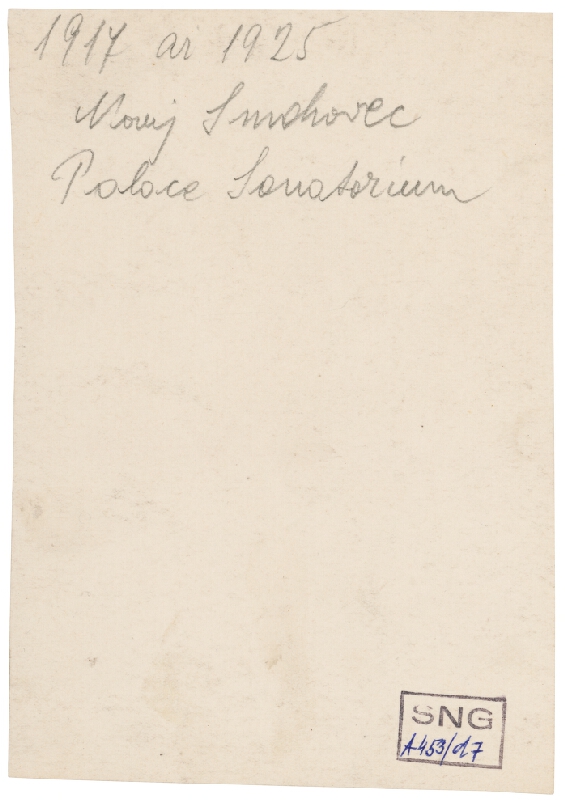 1917 ai 1925
Nový Smokovec
Palace Sanatorium
SNG
A453/d7